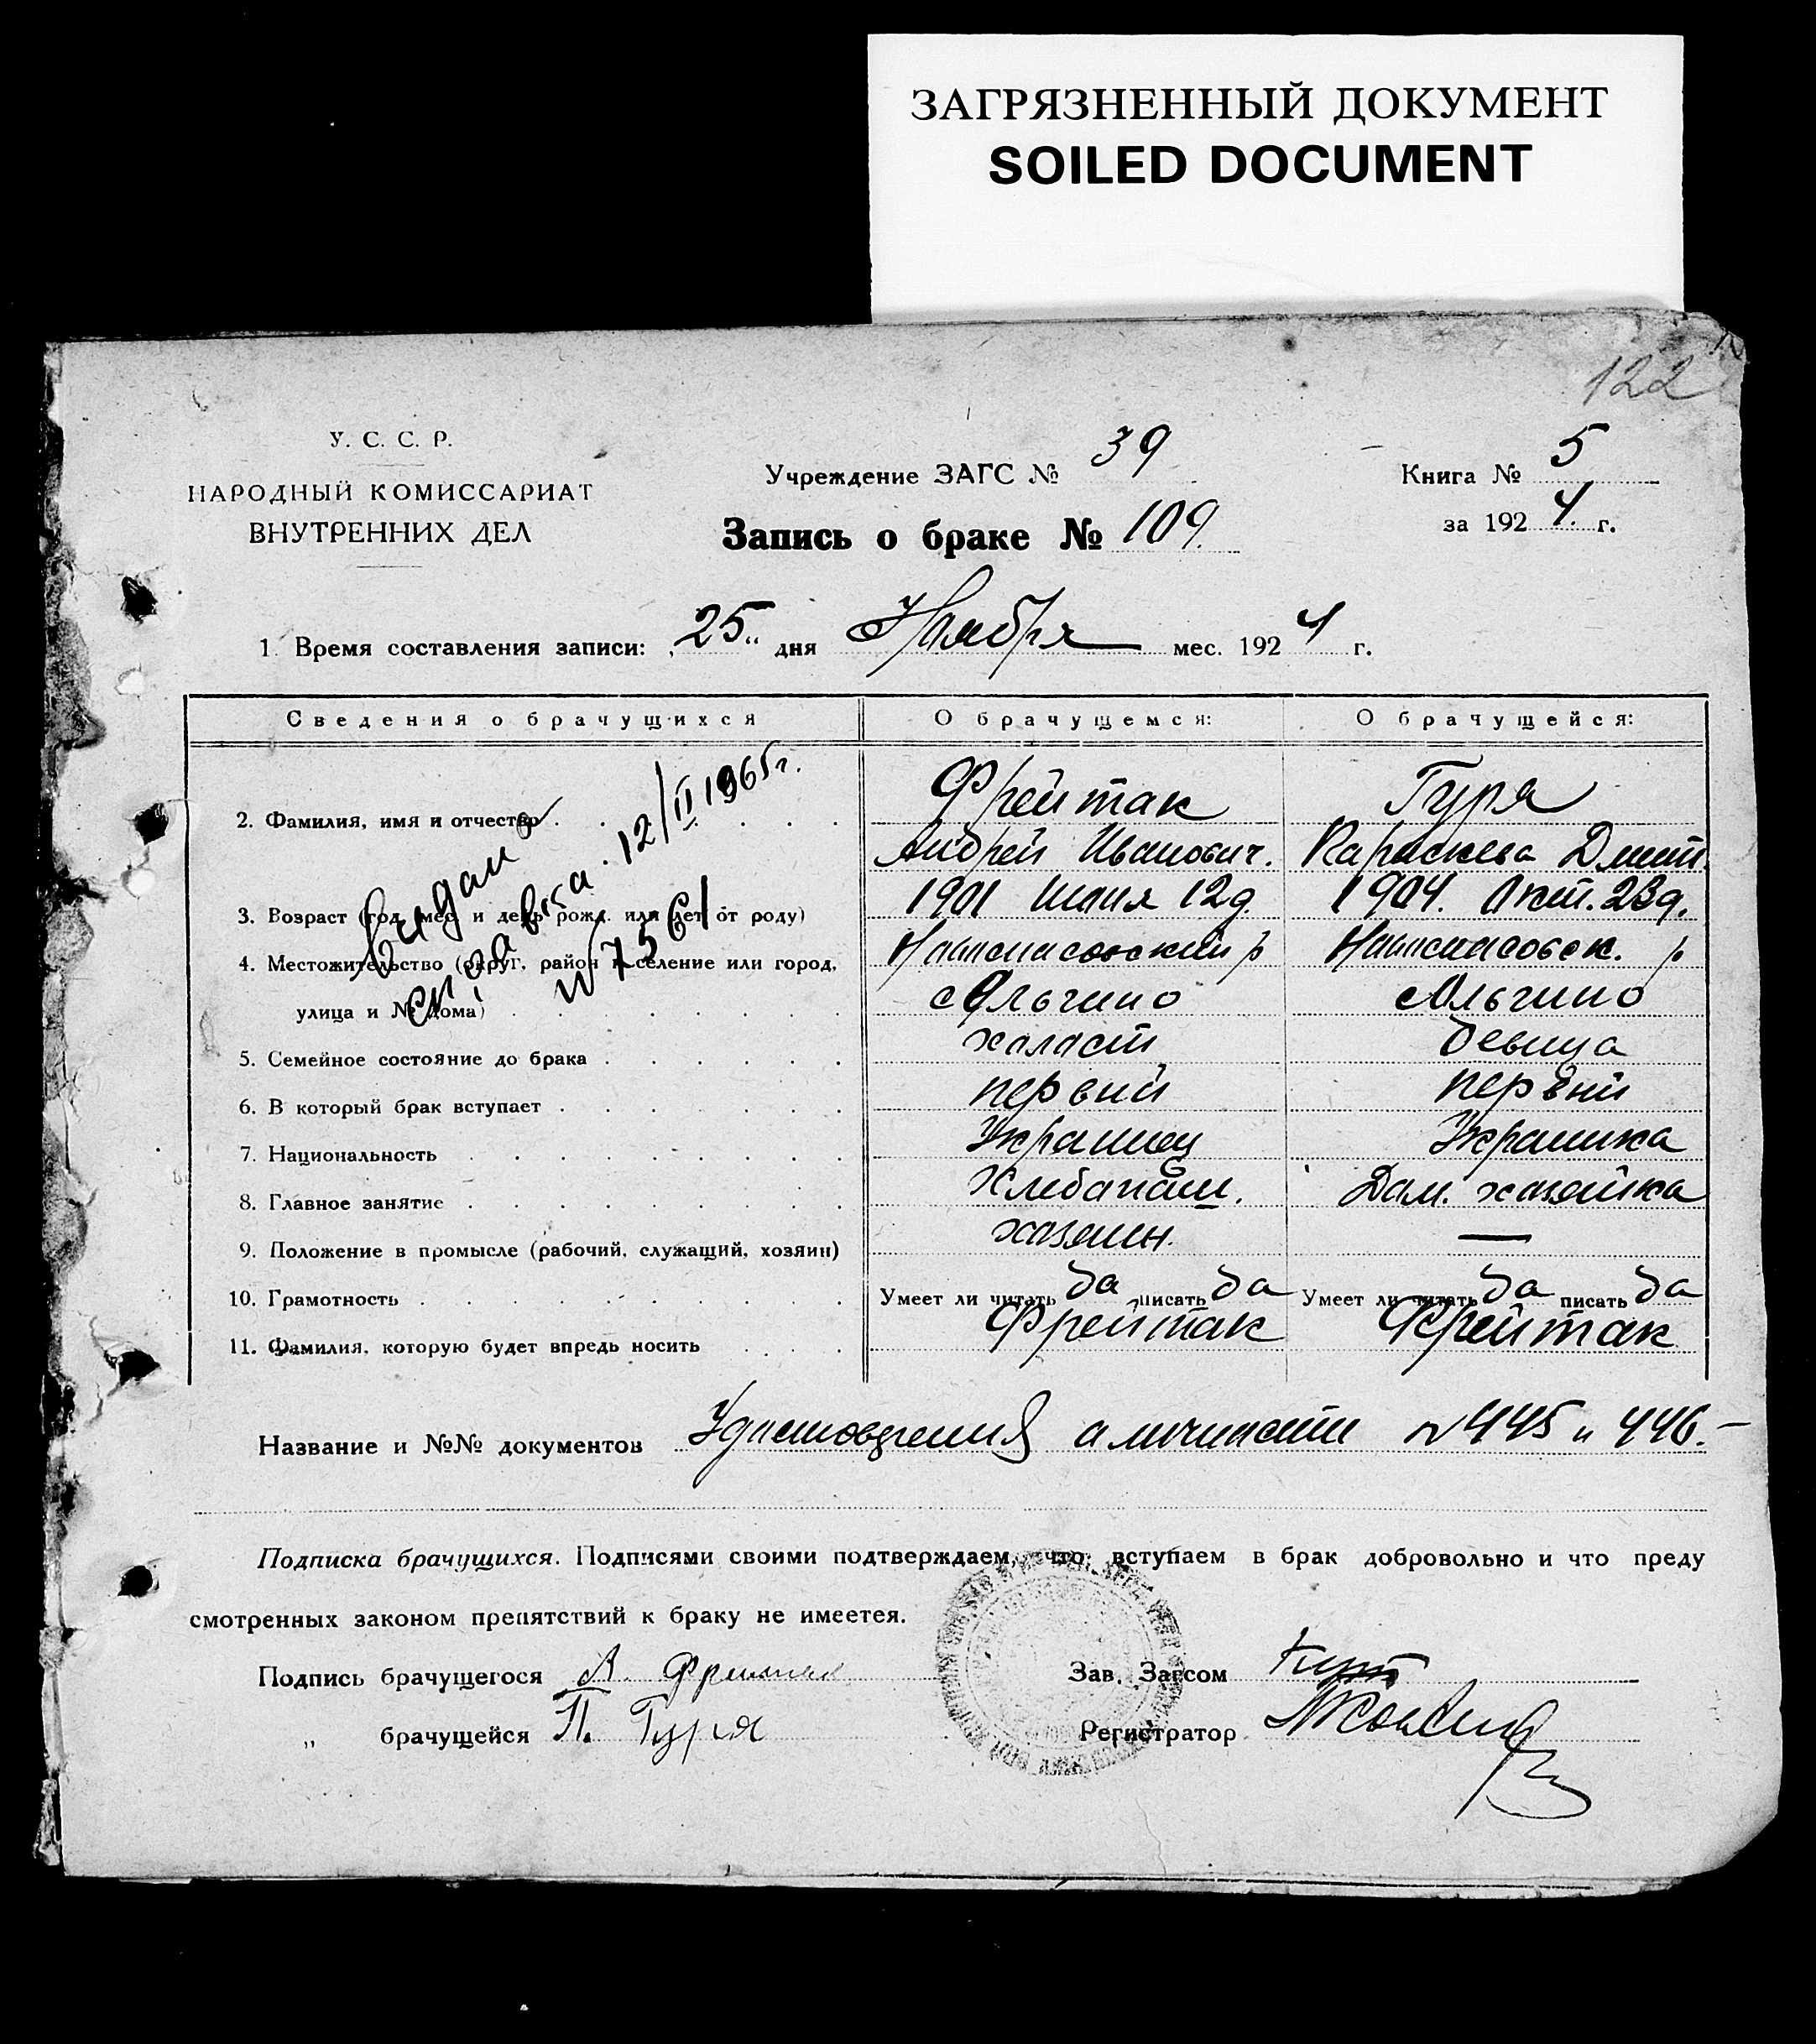 ЗАГРЯЗНЕННЫЙ ДОКУМЕНТ
SOILED DOCUMENT
122
У. С. С. Р.
НАРОДНЫЙ КОМИССАРИАТ
ВНУТРЕННИХ ДЕЛ
Учреждение ЗАГС № 39
Книга № 5
за 1924 г.
Запись о браке № 109.
1. Время составления записи: „25" дня Ноября мес. 1924 г.
Сведения о брачущихся О брачущемся: О брачущейся:
Выдана справка 12/II 1965г. №7561
2. Фамилия, имя и отчество Фрейтак Гуря
Андрей Иванович. Параскева Дмит.
3. Возраст (год, мес. и день рожд. или лет от роду) 1901 Июня 12д. 1904. Окт. 23д.
4. Местожительство (округ, район и селение или город, р р
улица и № дома) с Ольгино с Ольгино
5. Семейное состояние до брака халаст девица
6. В который брак вступает первий первий
7. Национальность Украинец Украинка
8. Главное занятие Хлебапаш. Дам. хазяйка
9. Положение в промысле (рабочий, служащий, хозяин) хазяин. —
10. Грамотность Умеет ли читать да писать да Умеет ли читать да писать да
11. Фамилия, которую будет впредь носить Фрейтак Фрейтак
Название и №№ документов Удастоверения а личнасти №445 и 446.—
Подписка брачущихся. Подписями своими подтверждаем, что вступаем в брак добровольно и что преду
смотренных законом препятствий к браку не имеетея.
Подпись брачущегося А. Фрейтак Зав. Загсом
„ брачущейся П. Гуря Регистратор